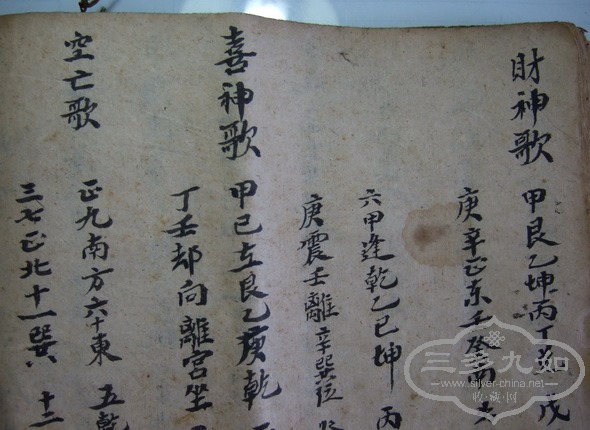 財神歌 甲艮乙坤丙丁 戊
庚辛正东壬癸
六甲逢乾乙已坤 丙
庚震壬離辛巽位
喜神歌 甲已立艮乙庚乾
丁壬却向離宮坐
空亡歌 正九南方六十東 五乾
三七正北十一巽 十二
三多九如
www.silver-china.net
收藏网